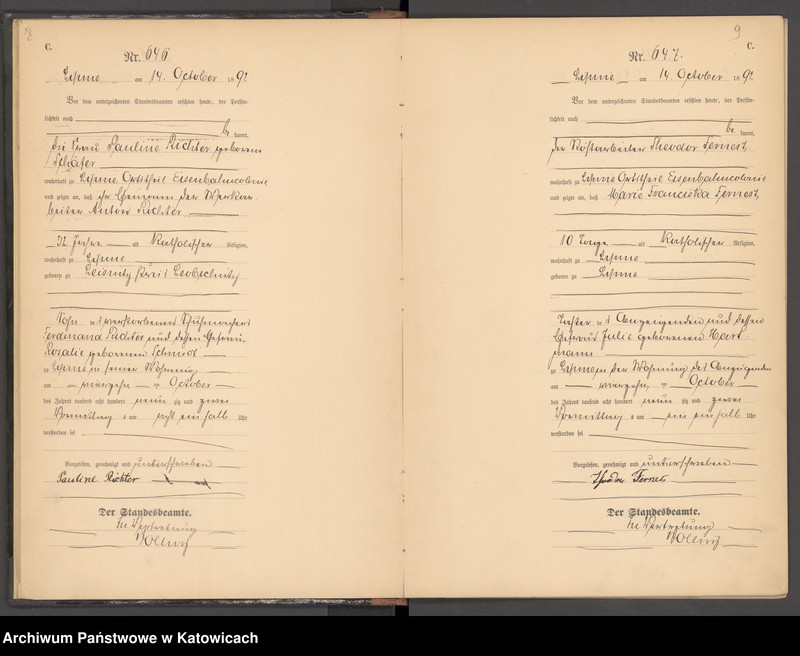 8
C.
Nr. 646
Lipine am 14. October 1892
Vor dem unterzeichneten Standesbeamten erschien heute, der Persön-
lichkeit nach
be kannt,
die Frau Pauline Richter geborene
wohnhaft zu Lipine Ortstheil Eisenbahncolonie
und zeigte an, daß ihr Ehemann der Werkar-
beiter Anton Richter
Jahre alt katholischer Religion,
wohnhaft zu Lipine
geboren zu Leisnitz Kreis Leobschütz
Sohn des verstorbenen Schuhmachers
Ferdinand Richter und dessen Ehefrau
Rosalie geborenen Schmidt
zu Lipine in seiner Wohnung
am vierzehn ten October
des Jahres tausend acht hundert neun zig und zwei
Vormittag s um acht ein halb Uhr
verstorben sei
Vorgelesen, genehmigt und unterschrieben
Pauline Richter
Der Standesbeamte.
In Vertretung
9
C.
Nr. 647.
Lipine am 14. October 1892
Vor dem unterzeichneten Standesbeamten erschien heute, der Persön-
lichkeit nach
be kannt,
der Röstarbeiter Theodor Fernest
wohnhaft zu Lipine Ortstheil Eisenbahncolonie
und zeigte an, daß Marie Franciska Fernest,
10 Tage alt katholischer Religion,
wohnhaft zu Lipine
geboren zu Lipine
Tochter des Anzeigenden und dessen
Ehefrau Julie geborenen Hart-
mann
zu Lipine in der Wohnung des Anzeigenden
am vierzehn ten October
des Jahres tausend acht hundert neun zig und zwei
Vormittag s um ein ein halb Uhr
verstorben sei
Vorgelesen, genehmigt und unterschrieben
Der Standesbeamte.
In Vertretung
Archiwum Państwowe w Katowicach